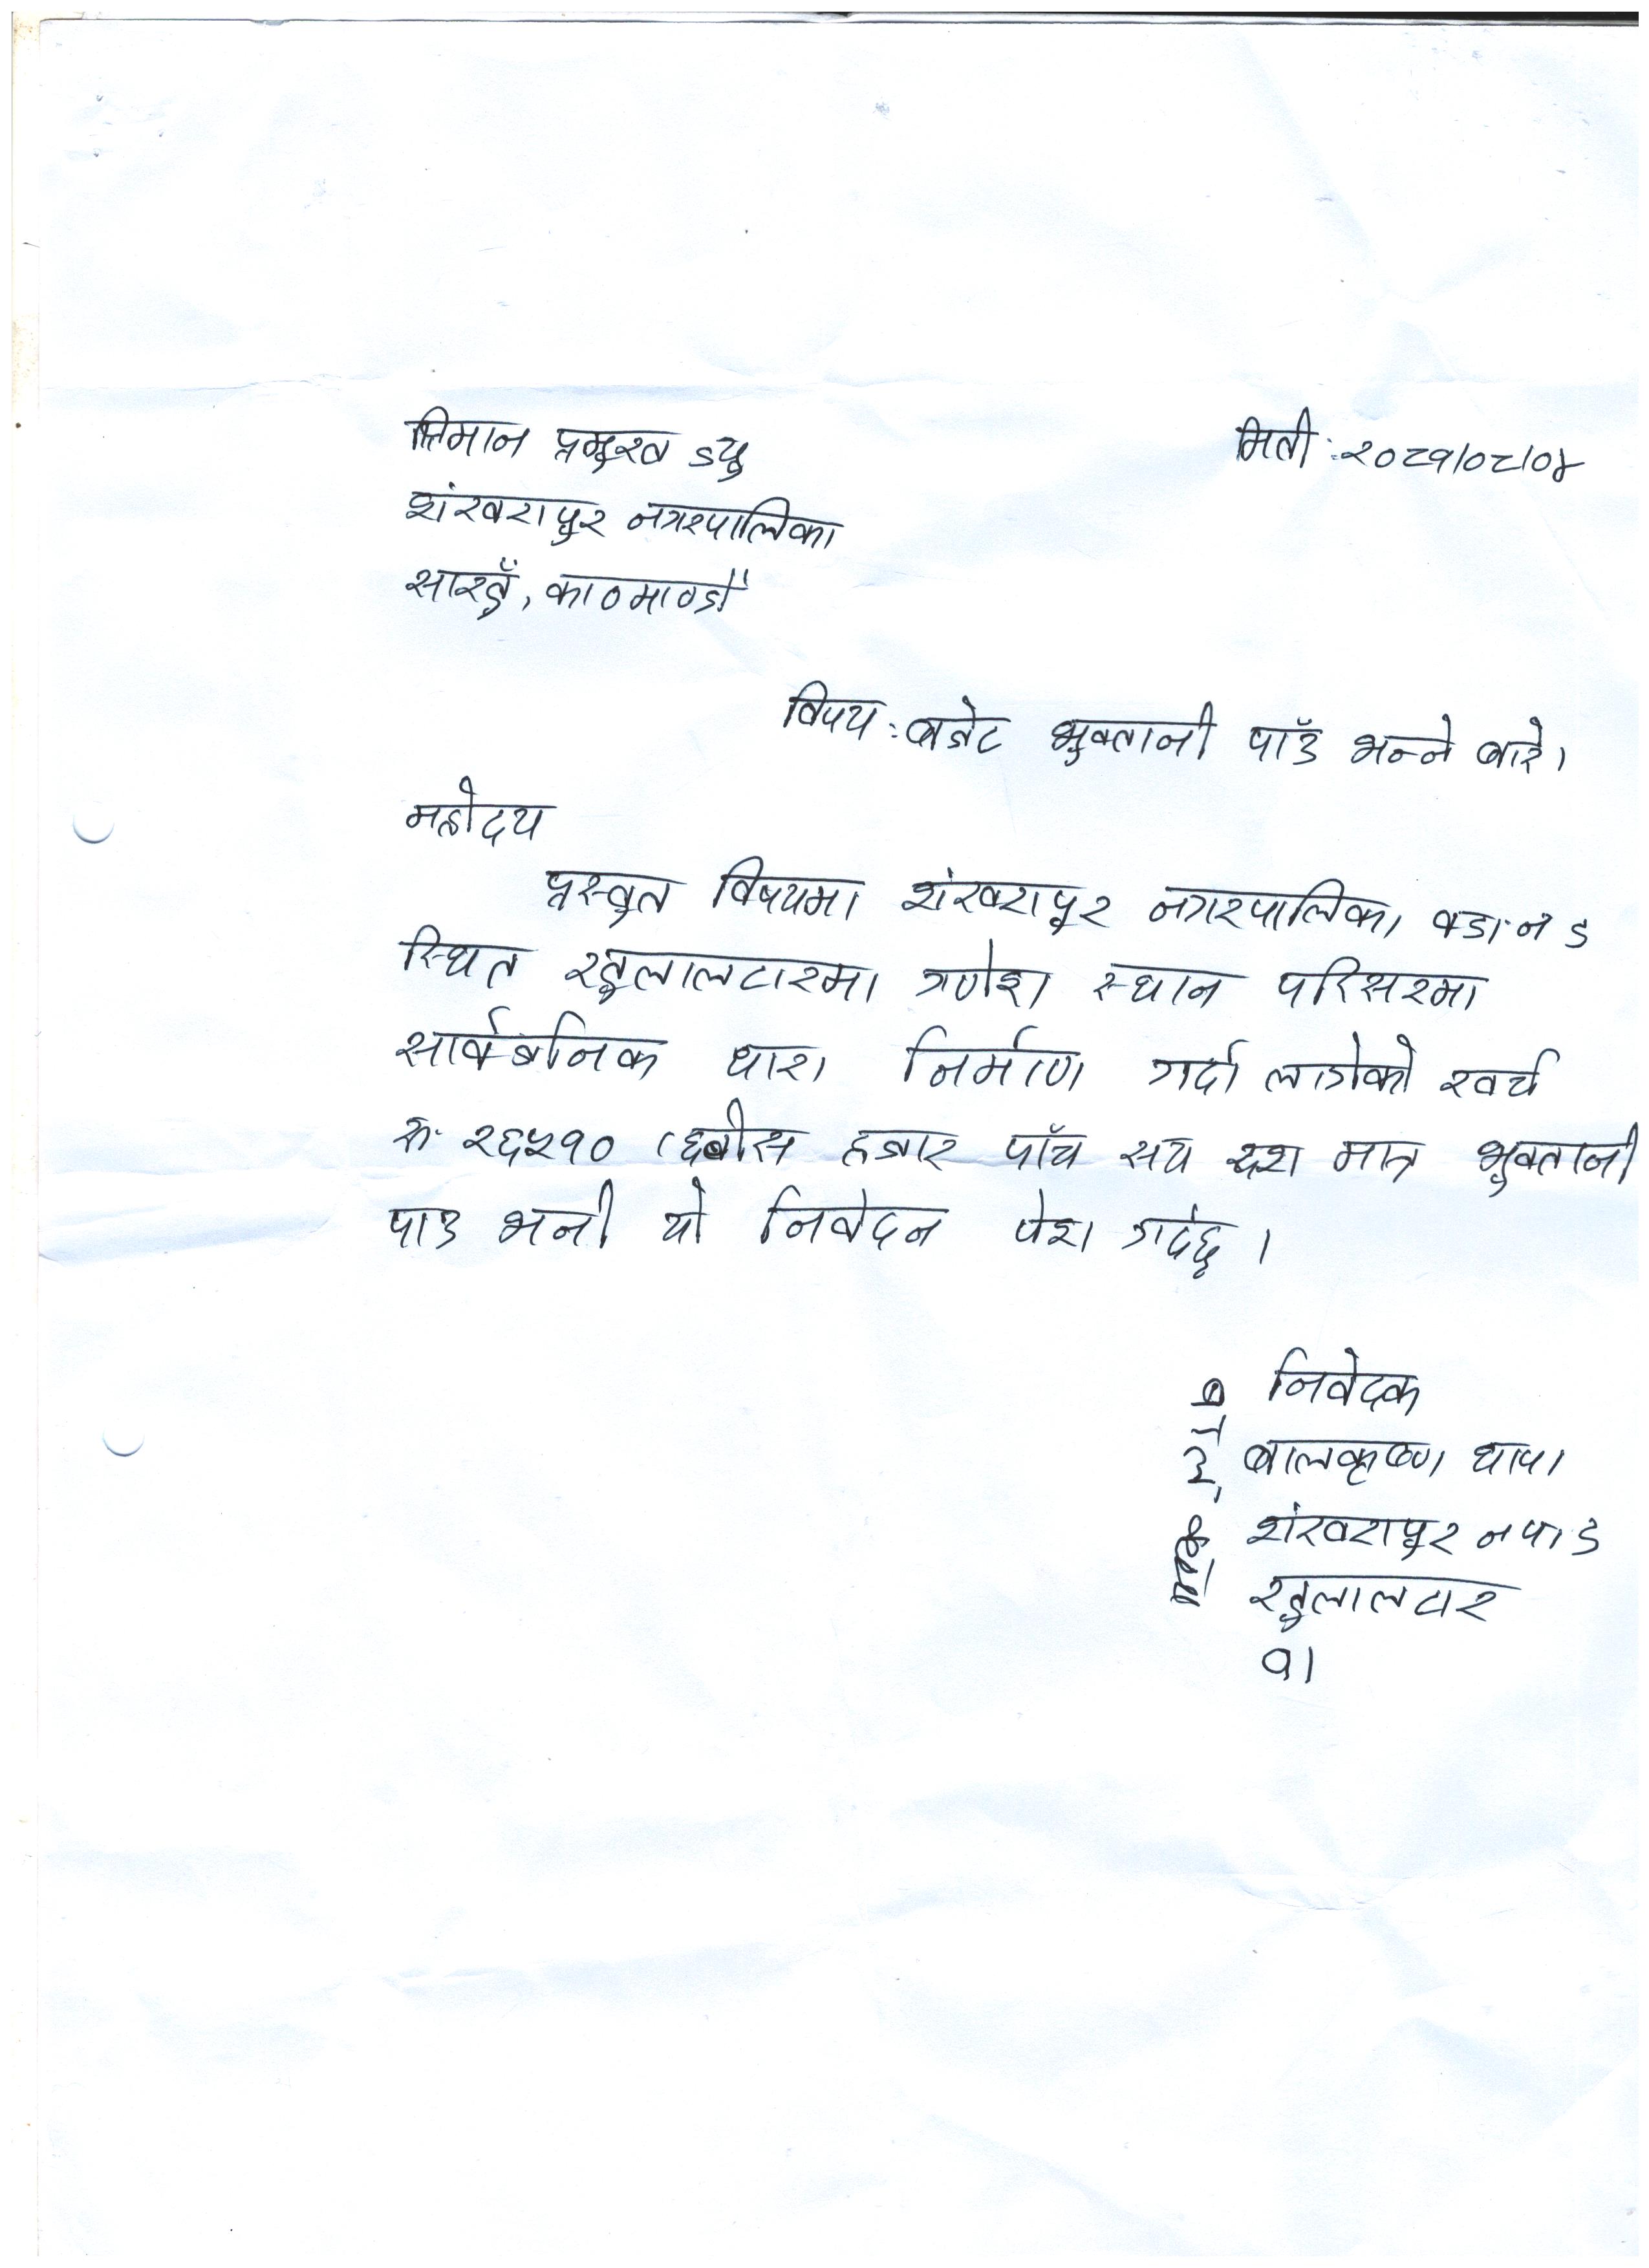 श्रीमान प्रमुख ज्यु
मिती : २०८१/०८/०४
शंखरापुर नगरपालिका
साखुँ, काठमाण्डौं
विषय : बजेट भुक्तानी पाँउ भन्ने बारे।
महोदय
प्रस्तुत विषयमा शंखरापुर नगरपालिका वडा नं ८
स्थित खुलालटारमा गणेश स्थान परिसरमा
सार्वजनिक धारा निर्माण गर्दा लागेको खर्च
रु. २६५१० (छबीस हजार पाँच सय दश मात्र भुक्तानी
पाउ भनी यो निवेदन पेश गर्दछु ।
निवेदक
बालकृष्ण थापा
शंखरापुर न पा ८
खुलालटार